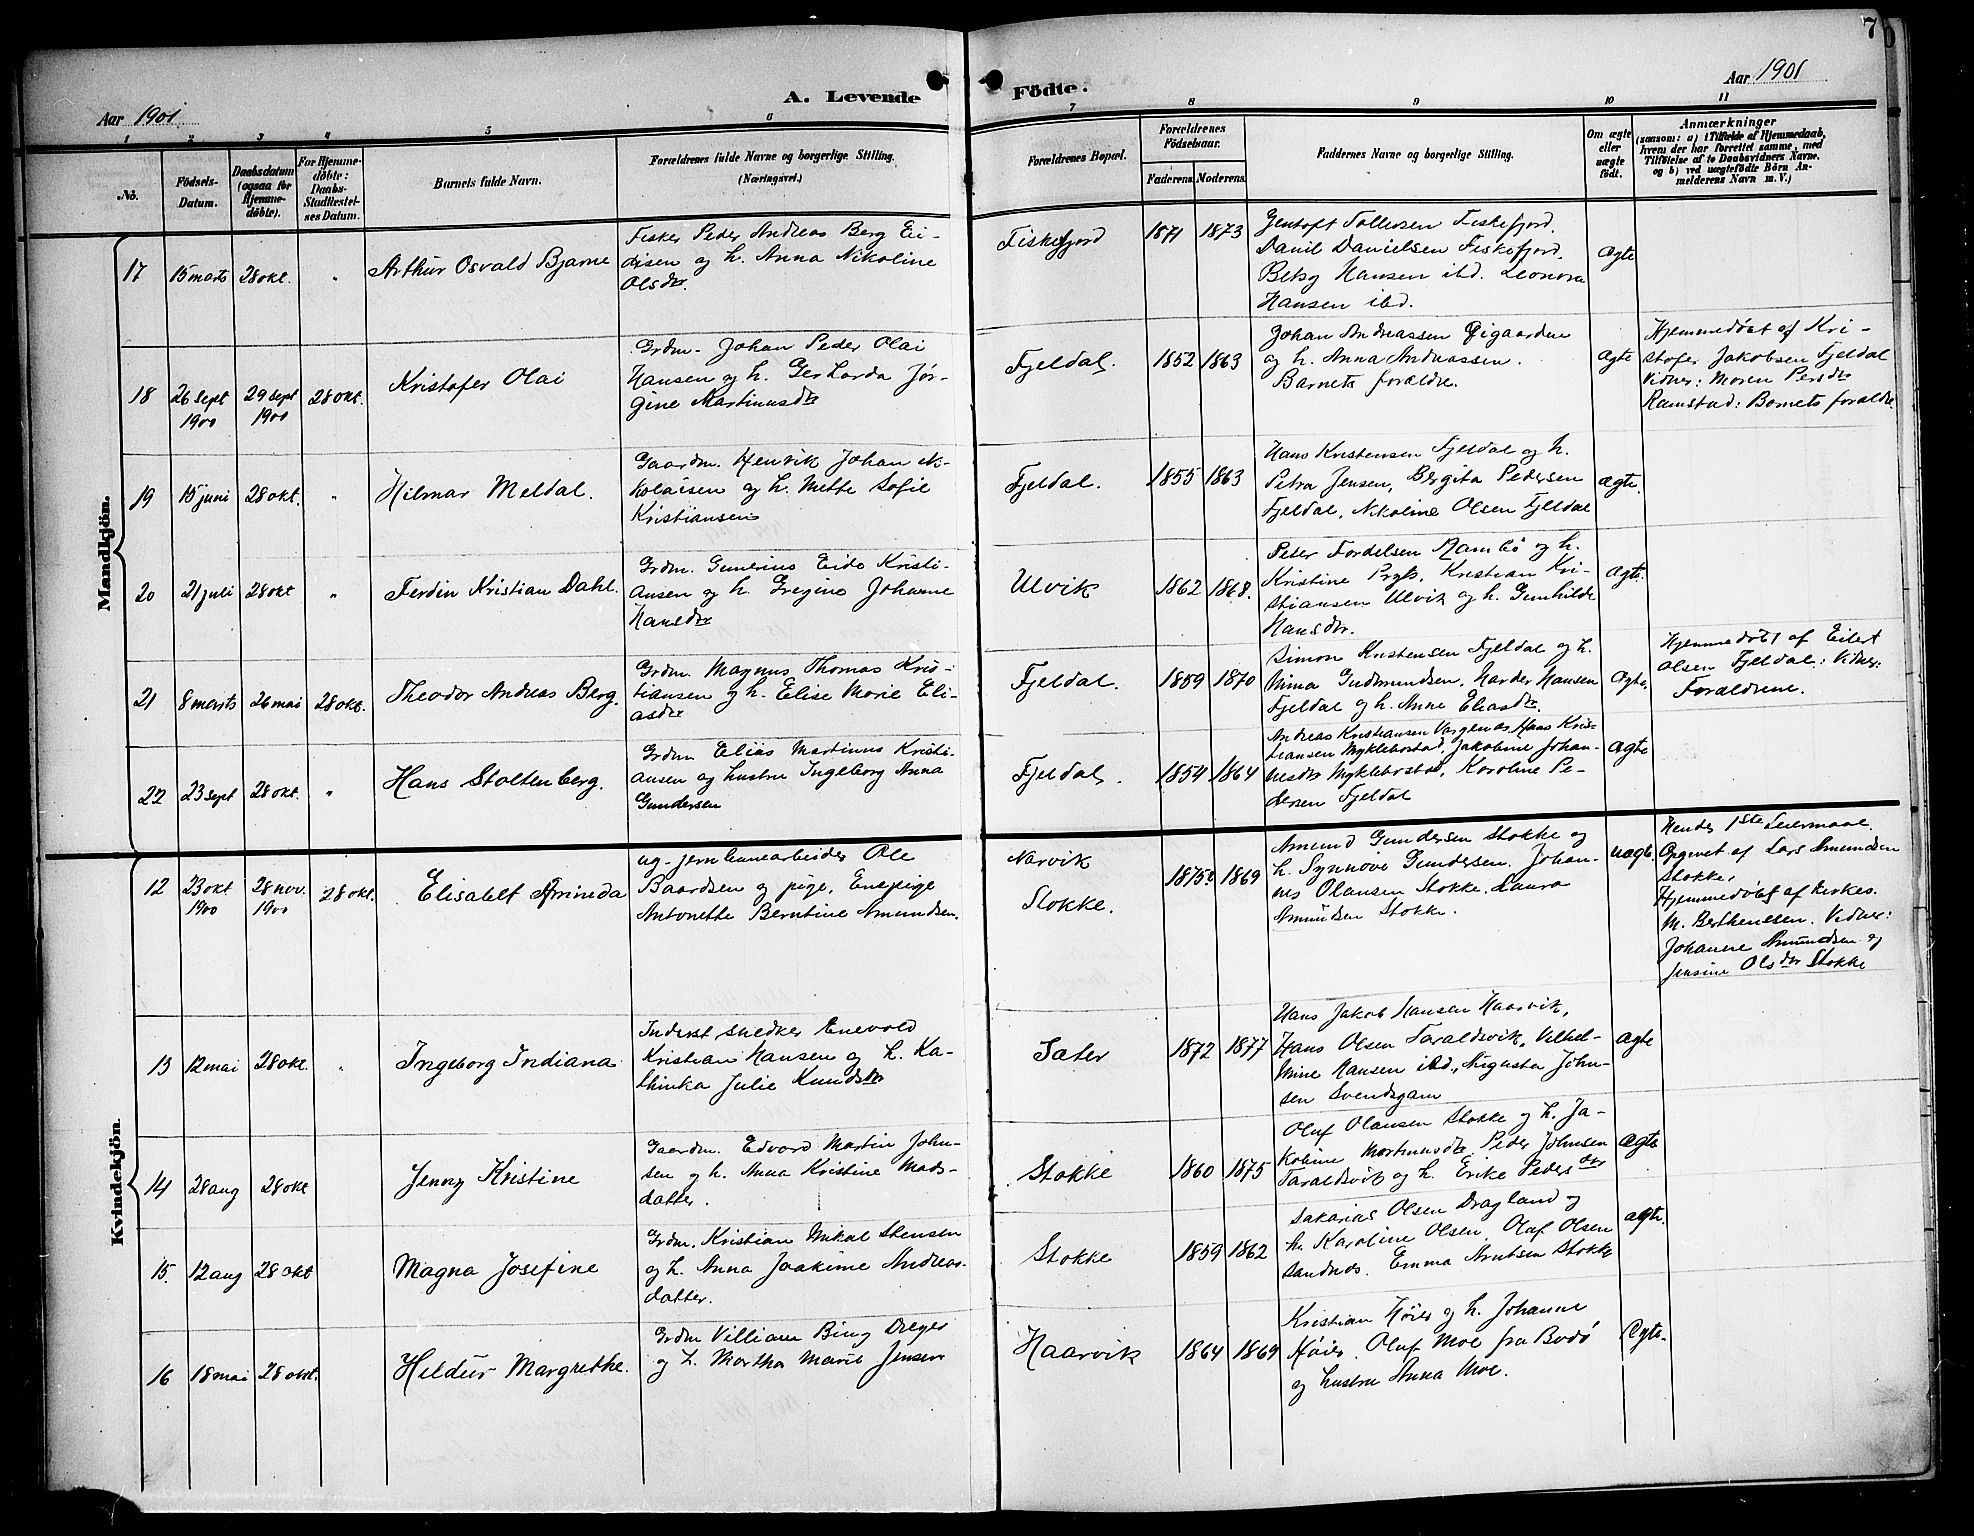 7
Aar 1901
A. Levende
Födte.
Aar 1901
1 2 3 4 5 6 7 8 9 10 11
No.
Födsels-
Datum.
Daabsdatum
(ogsaa for
Hjemme-
döbte).
For Hjemme-
döbte:
Daabs-
Stadfæstel-
ses Datum.
Barnets fulde Navn.
Forældrenes fulde Navne og borgerlige Stilling.
(Næringsvei.)
Forældrenes Bopæl.
Forældrenes
Födselsaar.
Faderens. Moderens.
Faddernes Navne og borgerlige Stilling.
Om ægte
eller
uægte
födt.
Anmærkninger
(saasom: a) i Tilfælde af Hjemmedaab,
hvem der har forrettet samme, med
Tilföielse af to Daabsvidners Navne.
og b) ved uægtefödte Börn An-
melderens Navn m. V.)
Mandkjön.
17 15 marts 28 okt. " Arthur Osvald Bjarne
Fisker Peder Andreas Berg Ei-
disen og h. Anna Nikoline
Olsdtr.
Fiskefjord 1871 1873
Gentoft Tollersen Fiskefjord.
Danil Danielsen Fiskefjord.
Betsy Hansen ibd. Leonora
Hansen ibd.
Ægte
18 26 sept 1900 29 sept 1900 28 okt. Kristofer Olai
Grdm. Johan Peder Olai
Hansen og h. Gerharda Jør-
gine Martinusdtr
Fjeldal. 1852 1863
Johan Andreassen Øigaarden
og h. Anna Andreassen.
Barnets forældre.
Ægte
Hjemmedøbt af Kri-
stofer Jakobsen Fjeldal
Vidner: Maren Persdtr
Ramstad: Barnets forældre.
19 15 juni 28 okt. " Hilmar Meldal.
Gaardm. Henrik Johan Ni-
kolaisen og h. Mette Sofie
Kristiansen
Fjeldal. 1855 1863
Hans Kristensen Fjeldal og h.
Petra Jensen, Bergita Pedersen
Fjeldal, Nikoline Olsen Fjeldal
Ægte.
20 21 juli 28 okt " Ferdin Kristian Dahl.
Grdm. Gunerius Eide Kristi-
ansen og h. Gregine Johanne
Hansdtr
Ulvik 1862 1868.
Peder Fordelsen Rambø og h.
Kristine Pryts, Kristian Kri-
stiansen Ulvik og h. Gunhilde
Hansdtr.
Ægte.
21 8 marts 26 mai 28 okt. Theodor Andreas Berg.
Grdm. Magnus Thomas Kris-
tiansen og h. Elise Marie Eli-
asdtr
Fjeldal. 1859 1870
Simon Kristensen Fjeldal og h.
Mina Gudmundsen, Harder Hansen
Fjeldal og h. Anne Eliasdtr.
Ægte.
Hjemmedøbt af Eilert
Olsen Fjeldal: Vidner:
Forældrene.
22 23 sept 28 okt. " Hans Stoltenberg.
Grdm Elias Martinus Kristi-
ansen og hustru Ingeborg Anna
Gundersen
Fjeldal. 1854 1864
Andreas Kristiansen Vargenæs, Hans Kris-
tiansen Myklebostad, Jakobine Johan-
nesdtr Myklebostad, Karoline Pe-
dersen Fjeldal
Ægte
Kvindekjön.
12 23 okt 1900 28 nov. 1900 28 okt. Elisabet Arminda
ug. jernbanearbeider Ole
Baardsen og pige, Enepige
Antonette Berntine Amundsen.
Narvik
Stokke. 1875? 1869
Amund Gundersen Stokke og
h. Synnøve Gundersen. Johan-
nes Olausen Stokke. Laura
Amundsen Stokke.
uægte.
Hendes 1ste Leiermaal.
Opgivet af Lars Amundsen
Stokke.
Hjemmedøbt af kirkes.
M. Berthensen. Vidner:
Johanne Amundsen og
Jensine Olsdtr Stokke
13 12 mai 28 okt. " Ingeborg Indiana
Inderst snedker Enevold
Kristian Hansen og h. Ka-
thinka Julie Knudsdtr
Sæter 1872 1877
Hans Jakob Hansen Haarvik,
Hans Olsen Taraldsvik, Vilhel-
mine Hansen ibd., Augusta John-
sen Svendsgam
Ægte
14 28 aug 28 okt Jenny Kristine
Gaardm. Edvard Martin John-
sen og h. Anna Kristine Mads-
datter.
Stokke 1860 1875
Oluf Olausen Stokke og h. Ja-
kobine Martinusdtr, Peder Johnsen
Taraldsvik og h. Erike Pedersdtr
Ægte
15. 12 aug 28 okt Magna Josefine
Grdm. Kristian Mikal Stensen
og h. Anna Joakime Andreas-
datter.
Stokke 1859 1862
Sakarias Olsen Dragland og
h. Karoline Olsen. Oluf Olsen
Sandnes. Emma Arntsen Stokke
ægte.
16 18 mai 28 okt. Hildur Margrethe.
Grdm Villiam Bing Dreyer
og h. Martha Marie Jensen
Haarvik 1864 1869
Kristian Høier og h. Johanne
Høier. Oluf Moe fra Bodø
og hustru Anna Moe.
Ægte.